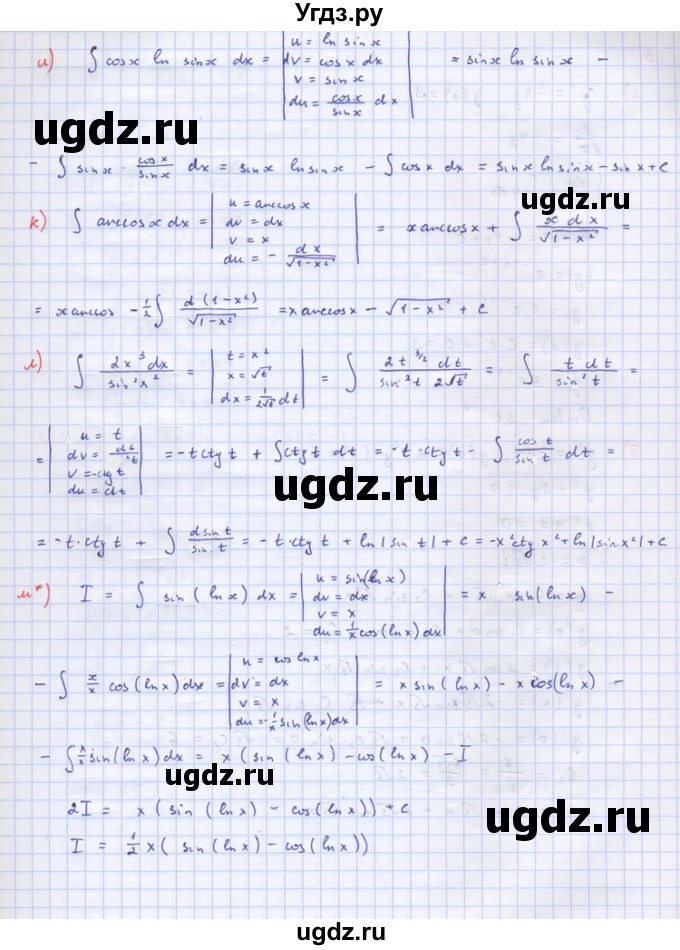 Угдз.ру
и) ∫ cosx ln sinx dx = | u = ln sinx dv = cosx dx v = sinx du = cosx/sinx dx | = sinx ln sinx −
− ∫ sinx · cosx/sinx dx = sinx lnsinx − ∫ cosx dx = sinx lnsinx − sinx + c
к) ∫ arccosx dx = | u = arccosx dv = dx v = x du = − dx/√(1−x²) | = x arccosx + ∫ x dx/√(1−x²) =
= x arccos − 1/2 ∫ d(1−x²)/√(1−x²) = x arccosx − √(1−x²) + c
л) ∫ 2x³dx/sin²x² = | t = x² x = √t dx = 1/(2√t) dt | = ∫ 2t^(3/2) dt/(sin²t 2√t) = ∫ t dt/sin²t =
= | u = t dv = dt/²t v = −ctg t du = dt | = −t ctg t + ∫ctg t dt = −t · ctg t − ∫ cost/sin t dt =
= −t · ctg t + ∫ dsint/sin t = −t · ctg t + ln|sin t| + c = −x²ctg x² + ln|sinx²| + c
м*) I = ∫ sin(lnx) dx = | u = sin(lnx) dv = dx v = x du = 1/x cos(lnx)dx | = x sin(lnx) −
− ∫ x/x cos(lnx)dx = | u = coslnx dv = dx v = x du = −1/x sin(lnx)dx | = x sin(lnx) − x cos(lnx) −
− ∫ x/x sin(lnx)dx = x(sin(lnx) − cos(lnx) − I
2I = x(sin(lnx) − cos(lnx)) + c
I = 1/2 x(sin(lnx) − cos(lnx))
ugdz.ru
ugdz.ru
ugdz.ru
ugdz.ru
ugdz.ru
ugdz.ru
ugdz.ru
ugdz.ru